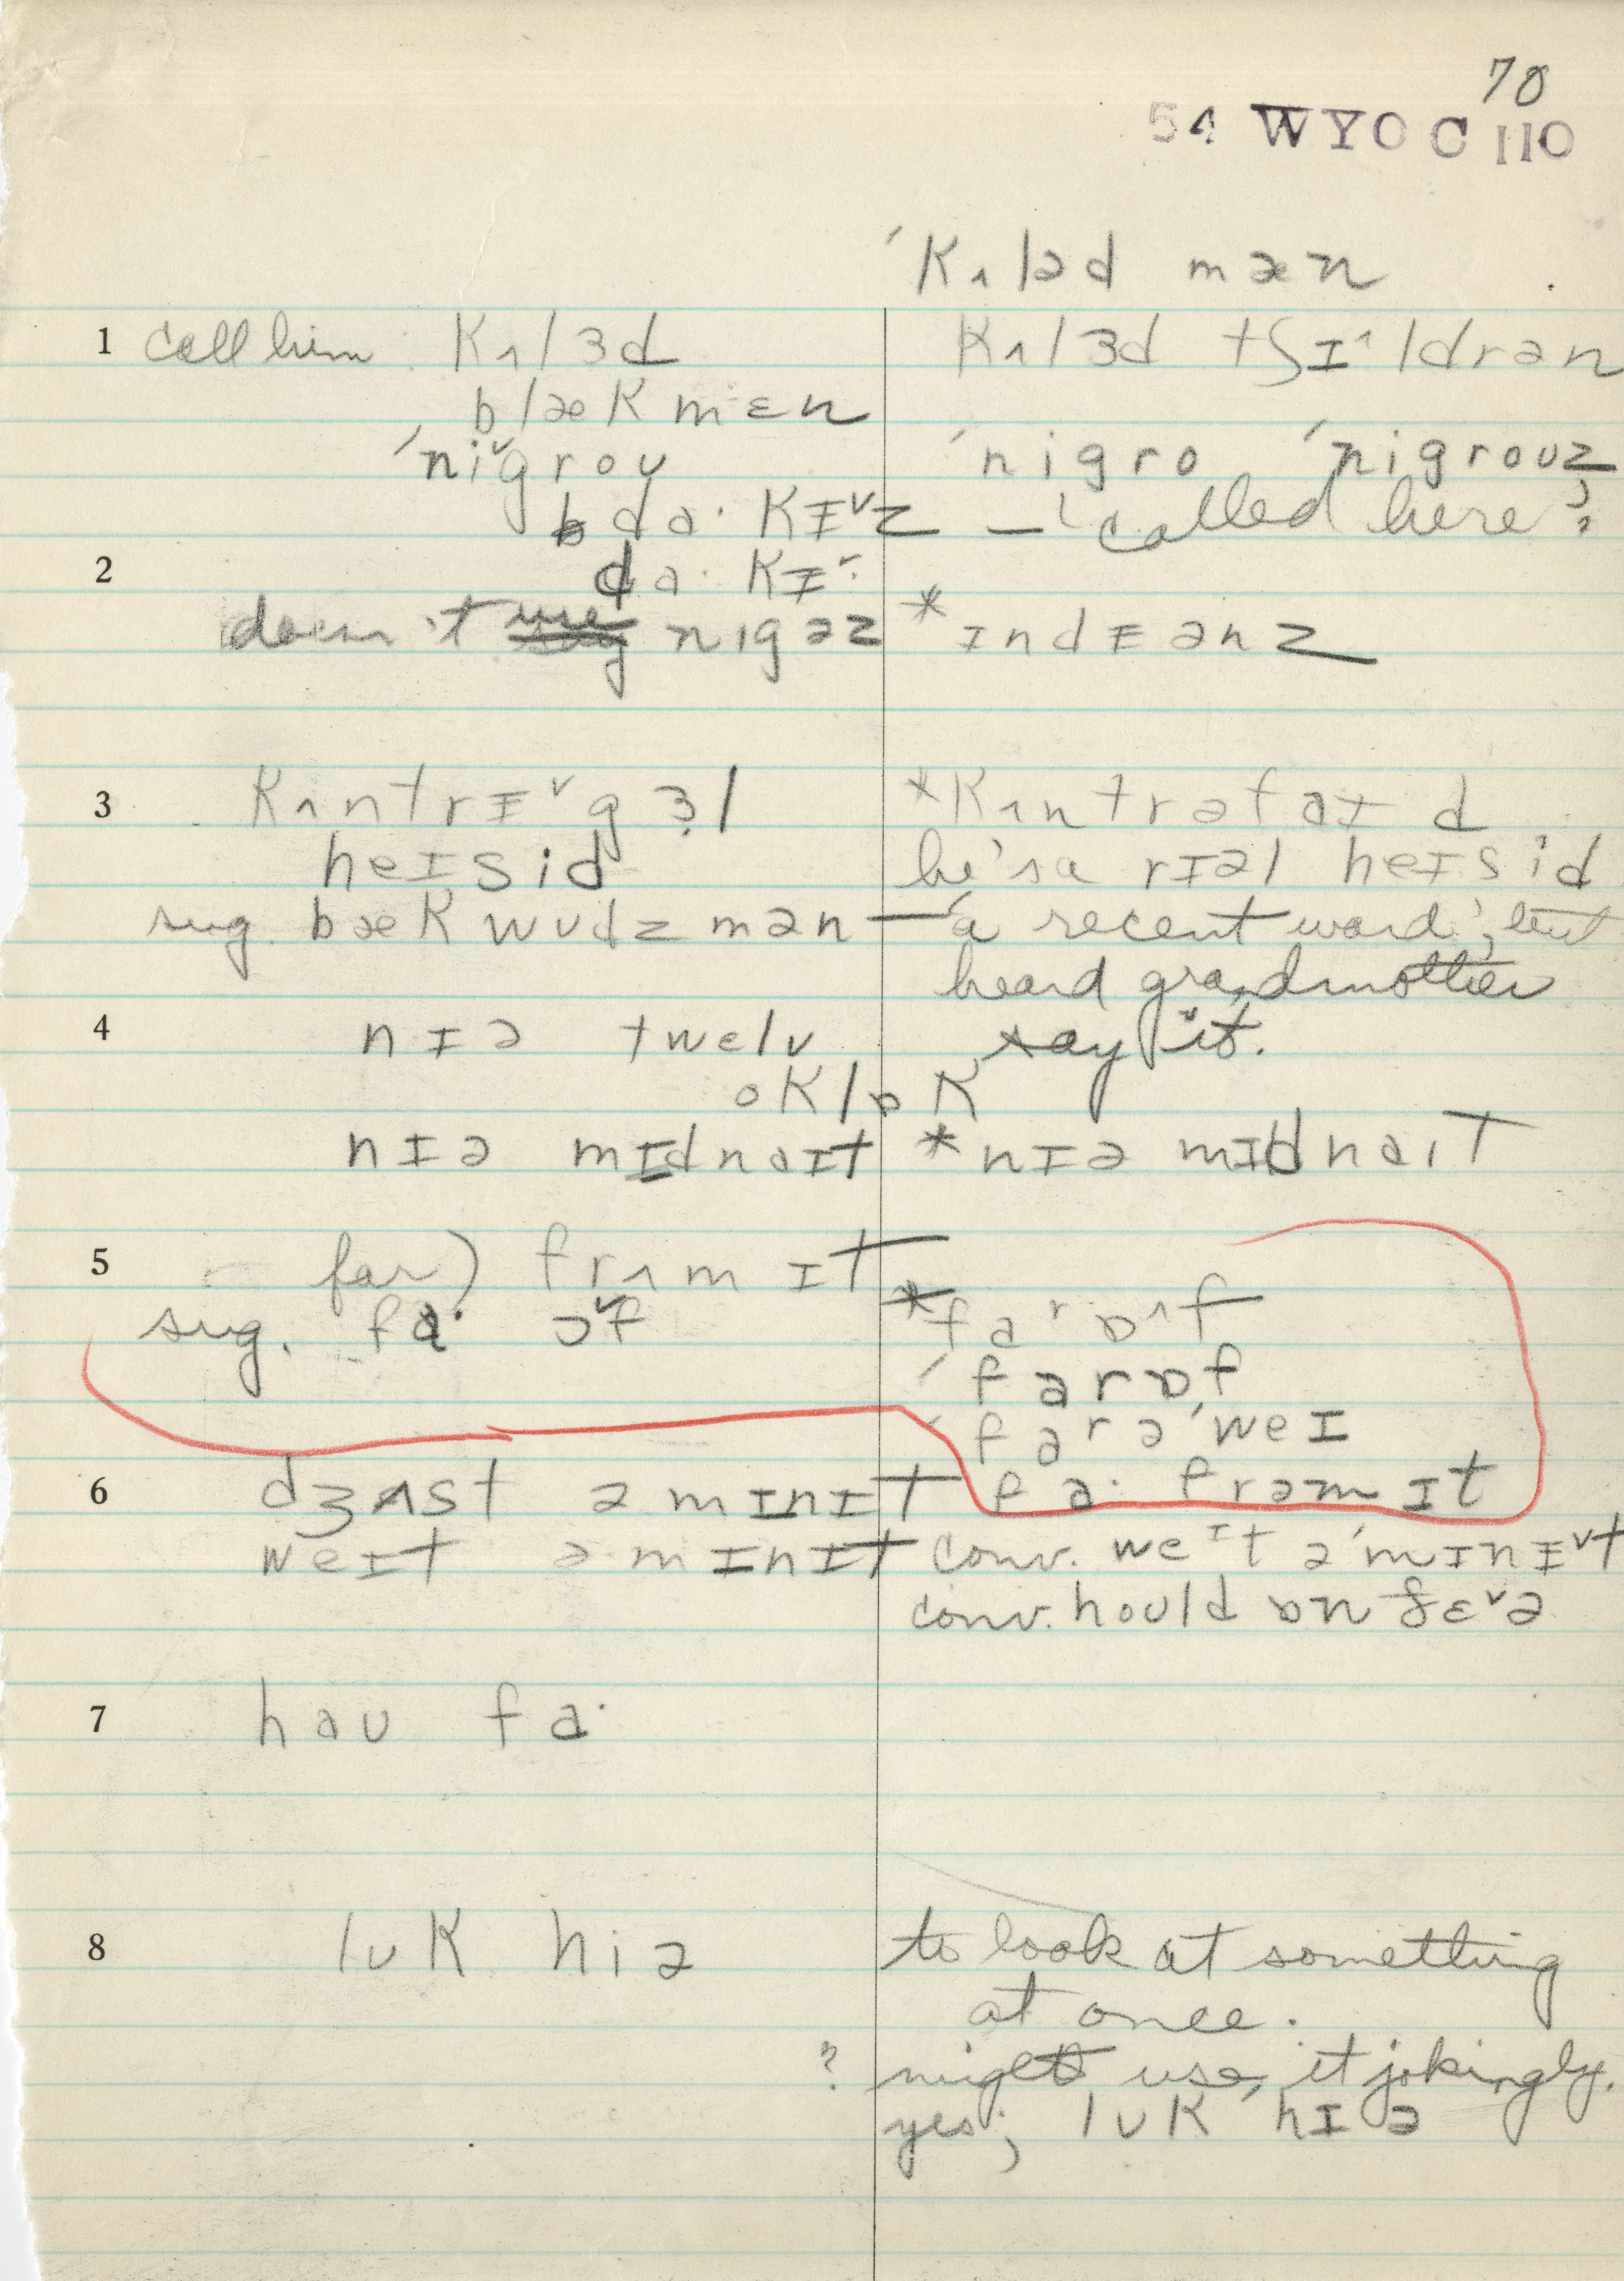 70
54 WYO C 110
ˈkʌləd mæn
1 call him kʌlɜd kʌlɜd tʃɪ^ldrən
blækmɛn
ˈni˅groʊ ˈnigro ˈnigroʊz
da· kɪ˅z — 'called here'
2 da· kɪ˅·
doesn't use nɪgəz *ɪndɪənz
3 kʌntrɪ˅gɜl *kʌntrəfaɪd
heɪsid he's a rɪəl heɪsid
sug. bækwʊdzmən — 'a recent word', but
heard grandmother
4 nɪə twelv say it.
oklɒk
nɪə mɪdnaɪt *nɪə mɪdnaɪt
5 far) frʌm ɪt
sug. fa· ɔ˅f *fa r ɒ^f
ˈfarɒf
ˈfarəˈweɪ
6 dʒʌst ə mɪnɪt fa· frəm ɪt
weɪt ə mɪnɪt conv. weɪt əˈmɪnɪ˅t
conv. hoʊld ɒn ðɛ˅ə
7 haʊ fa·
8 lʊk hiə to look at something
at once.
? might use it jokingly.
yes; lʊk hɪə